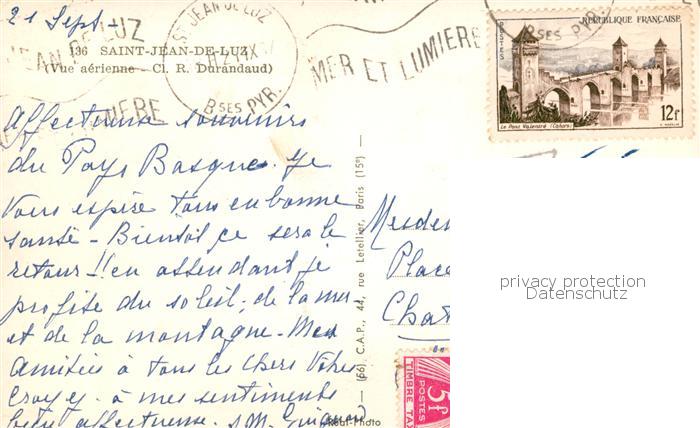 21 Sept -
136 SAINT-JEAN-DE-LUZ
(Vue aérienne - Cl. R. Durandaud)
JEAN DE LUZ
ST JEAN DE LUZ
BSES PYR.
MER ET LUMIERE
BSES PYR.
RÉPUBLIQUE FRANÇAISE
POSTES
Le Pont Valentré (Cahors)
12F
Affectueux souvenirs
du Pays Basque. Je
vous espère tous en bonne
santé - Bientôt ce sera le
retour - !! en attendant je
profite du soleil, de la mer
et de la montagne - Mes
amitiés à tous les chers Vôtres
Croyez à mes sentiments
bien affectueux.
(66) C.A.P., 44, rue Letellier, Paris (15e) -
Real-Photo
Mesdem
Place
Chat
5F
POSTES
TIMBRE TAX
privacy protection
Datenschutz